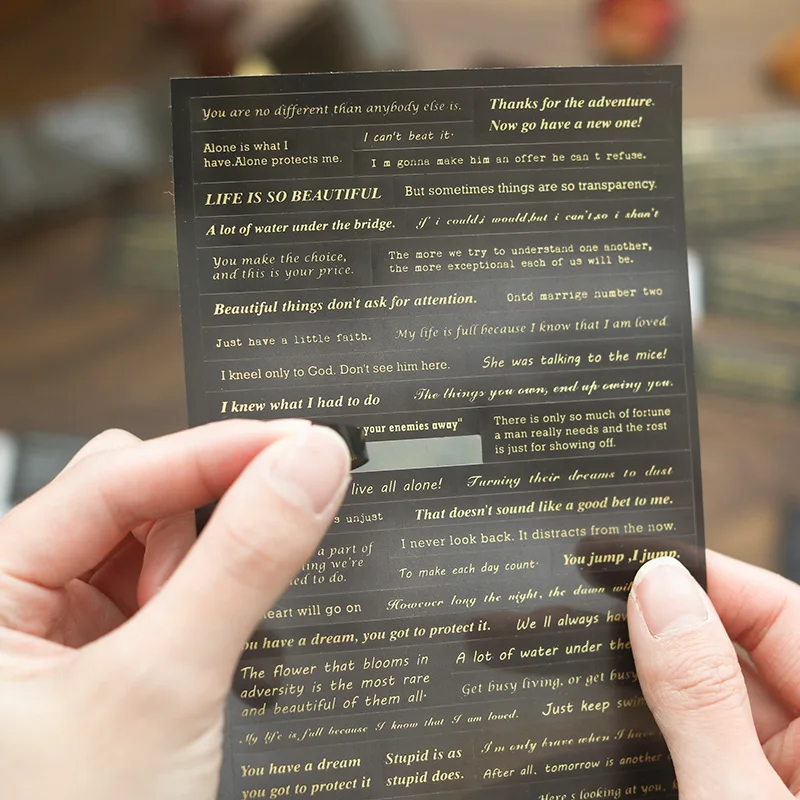 You are no different than anybody else is.
Thanks for the adventure.
Now go have a new one!
Alone is what I
have.Alone protects me.
I can't beat it.
I m gonna make him an offer he can t refuse.
LIFE IS SO BEAUTIFUL
But sometimes things are so transparency.
A lot of water under the bridge.
if i could,i would,but i can't,so i shan't
You make the choice,
and this is your price.
The more we try to understand one another,
the more exceptional each of us will be.
Beautiful things don't ask for attention.
Ontd marrige number two
Just have a little faith.
My life is full because I know that I am loved.
I kneel only to God. Don't see him here.
She was talking to the mice!
I knew what I had to do
The things you own, end up owing you.
your enemies away"
There is only so much of fortune
a man really needs and the rost
is just for showing off.
live all alone!
Turning their dreams to dust
unjust
That doesn't sound like a good bet to me.
a part of
we're
to do.
I never look back. It distracts from the now.
To make each day count.
You jump ,I jump.
heart will go on
However long the night, the dawn
you have a dream, you got to protect it.
We ll always
The flower that blooms in
adversity is the most rare
and beautiful of them all.
A lot of water under the
Get busy living, or get busy
My life is full because I know that I am loved.
Just keep
You have a dream
you got to protect it
Stupid is as
stupid does.
I'm only brave when I have
After all, tomorrow is another
Here s looking at you,